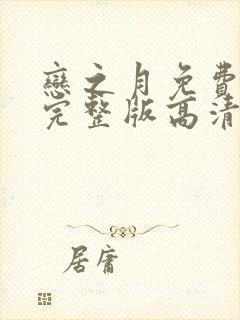 戀之月免費
完整版高清
居庸